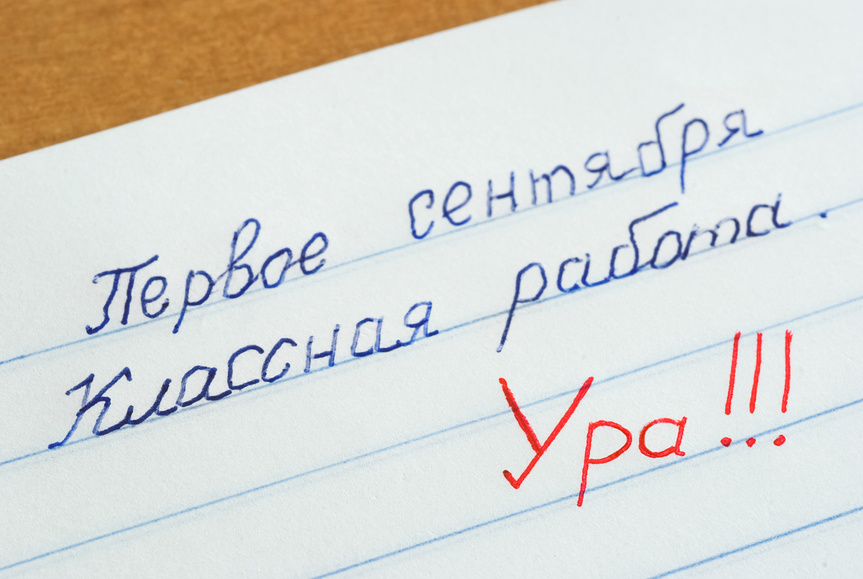 Первое сентября
Классная работа.
Ура!!!